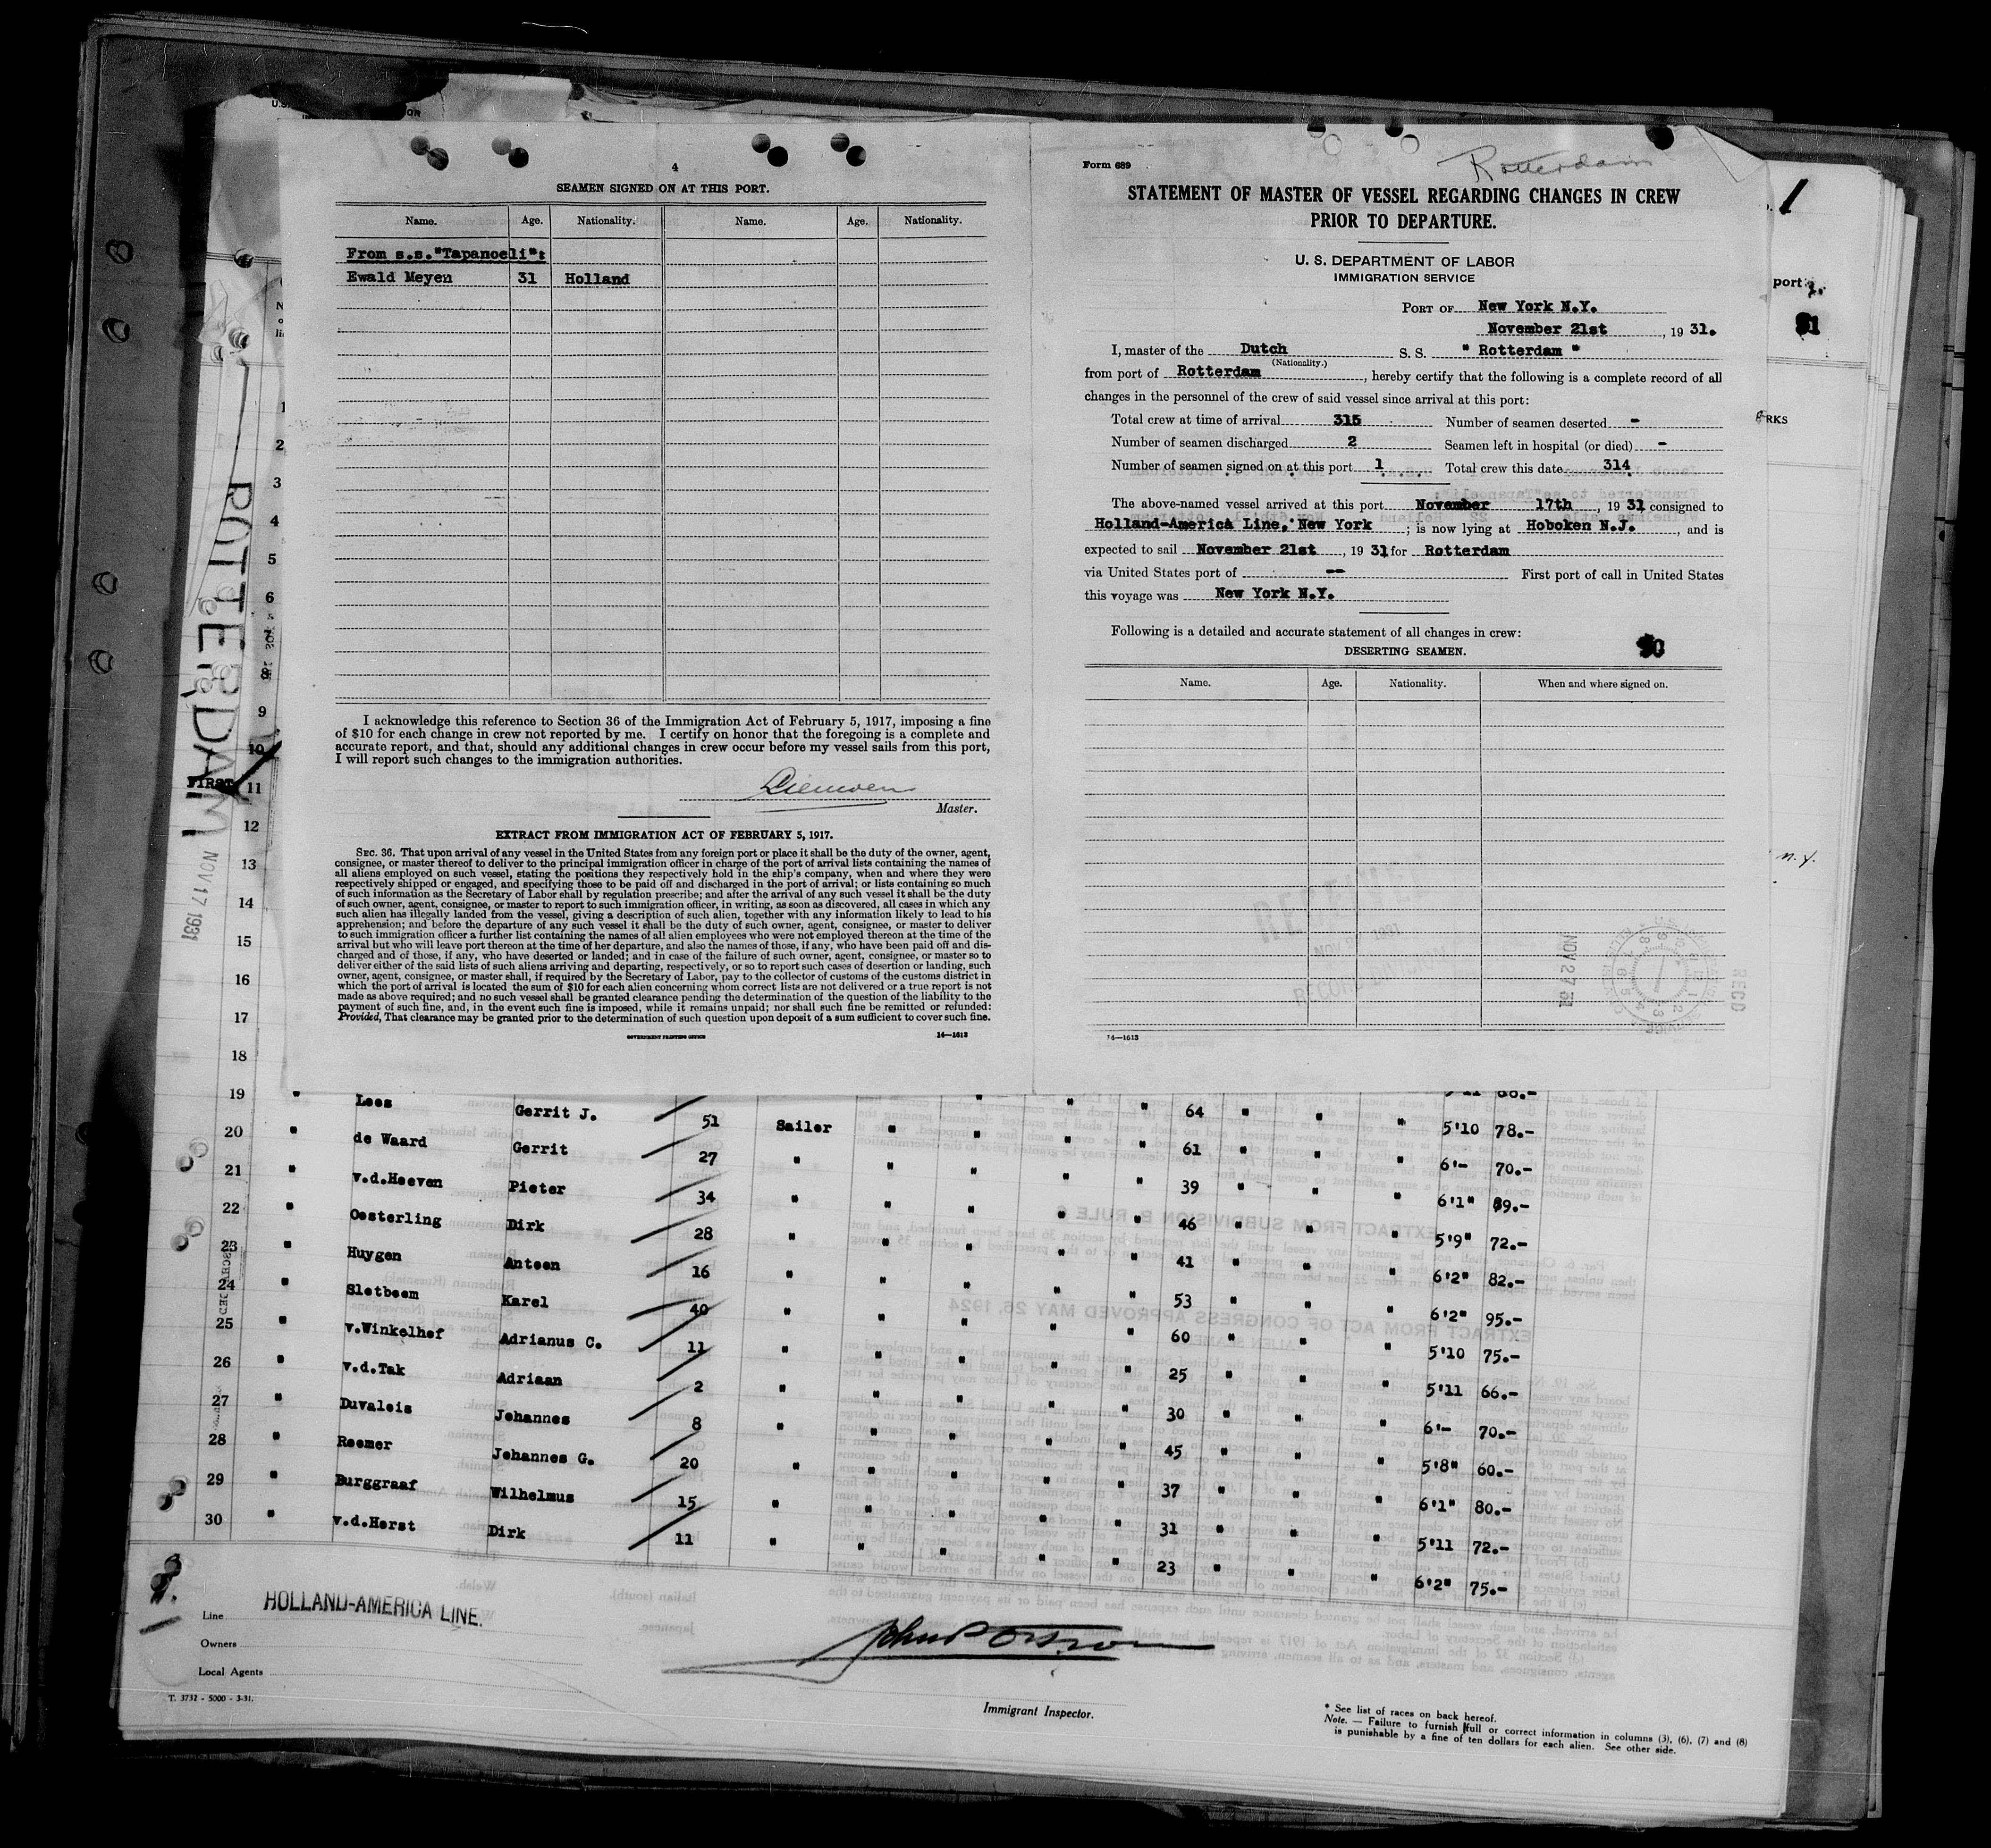 4
SEAMEN SIGNED ON AT THIS PORT.
Name. Age. Nationality. Name. Age. Nationality.
From s.s."Tapanoeli":
Ewald Meyen 31 Holland
I acknowledge this reference to Section 36 of the Immigration Act of February 5, 1917, imposing a fine
of $10 for each change in crew not reported by me. I certify on honor that the foregoing is a complete and
accurate report, and that, should any additional changes in crew occur before my vessel sails from this port,
I will report such changes to the immigration authorities.
Master.
EXTRACT FROM IMMIGRATION ACT OF FEBRUARY 5, 1917.
SEC. 36. That upon arrival of any vessel in the United States from any foreign port or place it shall be the duty of the owner, agent,
consignee, or master thereof to deliver to the principal immigration officer in charge of the port of arrival lists containing the names of
all aliens employed on such vessel, stating the positions they respectively hold in the ship's company, when and where they were
respectively shipped or engaged, and specifying those to be paid off and discharged in the port of arrival; or lists containing so much
of such information as the Secretary of Labor shall by regulation prescribe; and after the arrival of any such vessel it shall be the duty
of such owner, agent, consignee, or master to report to such immigration officer, in writing, as soon as discovered, all cases in which any
such alien has illegally landed from the vessel, giving a description of such alien, together with any information likely to lead to his
apprehension; and before the departure of any such vessel it shall be the duty of such owner, agent, consignee, or master to deliver
to such immigration officer a further list containing the names of all alien employees who were not employed thereon at the time of the
arrival but who will leave port thereon at the time of her departure, and also the names of those, if any, who have been paid off and dis-
charged and of those, if any, who have deserted or landed; and in case of the failure of such owner, agent, consignee, or master so to
deliver either of the said lists of such aliens arriving and departing, respectively, or so to report such cases of desertion or landing, such
owner, agent, consignee, or master shall, if required by the Secretary of Labor, pay to the collector of customs of the customs district in
which the port of arrival is located the sum of $10 for each alien concerning whom correct lists are not delivered or a true report is not
made as above required; and no such vessel shall be granted clearance pending the determination of the question of the liability to the
payment of such fine, and, in the event such fine is imposed, while it remains unpaid; nor shall such fine be remitted or refunded:
Provided, That clearance may be granted prior to the determination of such question upon deposit of a sum sufficient to cover such fine.
GOVERNMENT PRINTING OFFICE 14—1613
Form 689
Rotterdam
STATEMENT OF MASTER OF VESSEL REGARDING CHANGES IN CREW
PRIOR TO DEPARTURE.
U. S. DEPARTMENT OF LABOR
IMMIGRATION SERVICE
PORT OF New York N.Y.
November 21st, 19 31.
I, master of the Dutch S. S. " Rotterdam "
(Nationality.)
from port of Rotterdam, hereby certify that the following is a complete record of all
changes in the personnel of the crew of said vessel since arrival at this port:
Total crew at time of arrival 315 Number of seamen deserted -
Number of seamen discharged 2 Seamen left in hospital (or died) -
Number of seamen signed on at this port 1 Total crew this date 314
The above-named vessel arrived at this port November 17th, 19 31 consigned to
Holland-America Line, New York; is now lying at Hoboken N.J., and is
expected to sail November 21st, 19 31 for Rotterdam
via United States port of -- First port of call in United States
this voyage was New York N.Y.
Following is a detailed and accurate statement of all changes in crew:
DESERTING SEAMEN.
Name. Age. Nationality. When and where signed on.
NOV 27 31
RECD
14—1613
1
port
RKS
n.y.
ROTTERDAM NOV 17 1931
FIRST
1
2
3
4
5
6
7
8
9
10
11
12
13
14
15
16
17
18
19 " Lees Gerrit J. 51 Sailer " " " " 64 " " " 5'10 78.-
20 " de Waard Gerrit 27 " " " " " 61 " " " 6'- 70.-
21 " v.d.Hoeven Pieter 34 " " " " " 39 " " " 6'1" 89.-
22 " Oosterling Dirk 28 " " " " " 46 " " " 5'9" 72.-
23 " Huygen Antoon 16 " " " " " 41 " " " 6'2" 82.-
24 " Slotboom Karel 40 " " " " " 53 " " " 6'2" 95.-
25 " v.Winkelhof Adrianus C. 11 " " " " " 60 " " " 5'10 75.-
26 " v.d.Tak Adriaan 2 " " " " " 25 " " " 5'11 66.-
27 " Duvalois Johannes 8 " " " " " 30 " " " 6'- 70.-
28 " Roemer Johannes G. 20 " " " " " 45 " " " 5'8" 60.-
29 " Burggraaf Wilhelmus 15 " " " " " 37 " " " 6'1" 80.-
30 " v.d.Horst Dirk 11 " " " " " 31 " " " 5'11 72.-
23 " " " 6'2" 75.-
Line HOLLAND-AMERICA LINE.
Owners
Local Agents
T. 3732 - 5000 - 3-31.
Immigrant Inspector.
* See list of races on back hereof.
Note. — Failure to furnish full or correct information in columns (3), (6), (7) and (8)
is punishable by a fine of ten dollars for each alien. See other side.